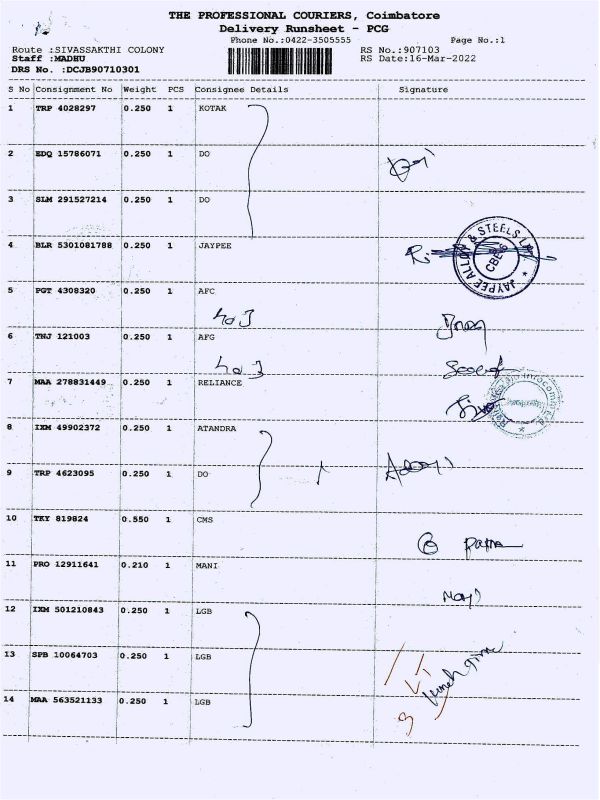 THE PROFESSIONAL COURIERS, Coimbatore
Delivery Runsheet - PCG
Phone No.:0422-3505555 Page No.:1
Route :SIVASSAKTHI COLONY RS No.:907103
Staff :MADHU RS Date:16-Mar-2022
DRS No. :DCJB90710301
S No Consignment No Weight PCS Consignee Details Signature
1 TRP 4028297 0.250 1 KOTAK
2 EDQ 15786071 0.250 1 DO
3 SLM 291527214 0.250 1 DO
4 BLR 5301081788 0.250 1 JAYPEE
JAYPEE ALLOY & STEELS
CBE-6
5 PGT 4308320 0.250 1 AFC
6 TNJ 121003 0.250 1 AFG
7 MAA 278831449 0.250 1 RELIANCE
8 IXM 49902372 0.250 1 ATANDRA
9 TRP 4623095 0.250 1 DO
10 TKY 819824 0.550 1 CMS
11 PRO 12911641 0.210 1 MANI
12 IXM 501210843 0.250 1 LGB
13 SPB 10064703 0.250 1 LGB
14 MAA 563521133 0.250 1 LGB